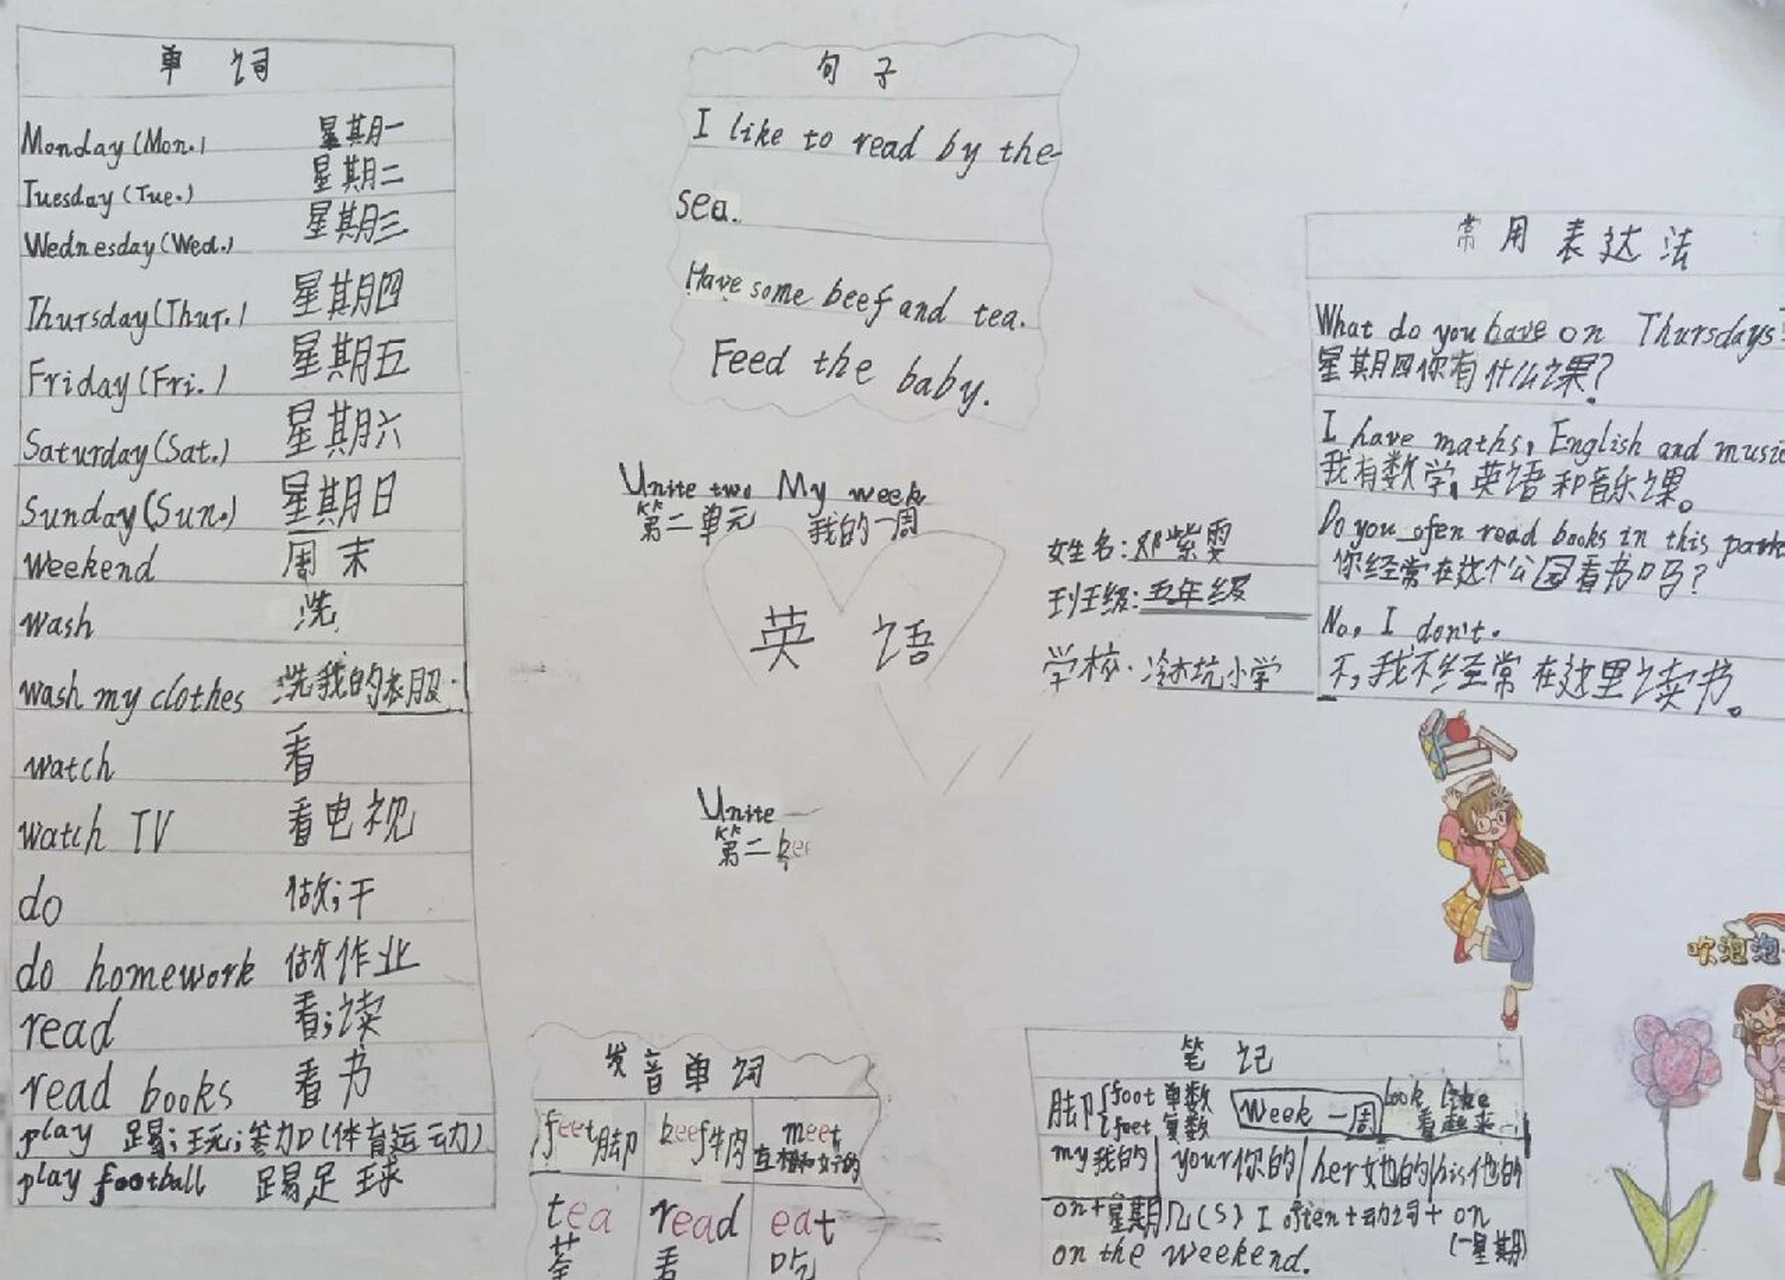 单词
Monday (Mon.) 星期一
Tuesday (Tue.) 星期二
Wednesday (Wed.) 星期三
Thursday (Thur.) 星期四
Friday (Fri.) 星期五
Saturday (Sat.) 星期六
Sunday (Sun.) 星期日
weekend 周末
wash 洗
wash my clothes 洗我的衣服.
watch 看
watch TV 看电视
do 做;干
do homework 做作业
read 看;读
read books 看书
play 踢;玩;参加(体育运动)
play football 踢足球
句子
I like to read by the
sea.
Have some beef and tea.
Feed the baby.
Unite two My week
第二单元 我的一周
英语
Unite
第二
姓名:邓紫雯
班级:五年级
学校:冷水坑小学
常用表达法
What do you have on Thursdays?
星期四你有什么课?
I have maths, English and music
我有数学,英语和音乐课。
Do you ofen read books in this park
你经常在这个公园看书吗?
No, I don't.
不,我不经常在这里读书。
吹泡泡
发音单词
feet脚 beef牛肉 meet
互相和好的
tea read eat
茶 看 吃
笔记
脚{foot 单数 week 一周 look like
feet 复数 看起来
my我的 your你的 her她的 his他的
on+星期几(s) I often+动词+on
on the weekend. (一星期)